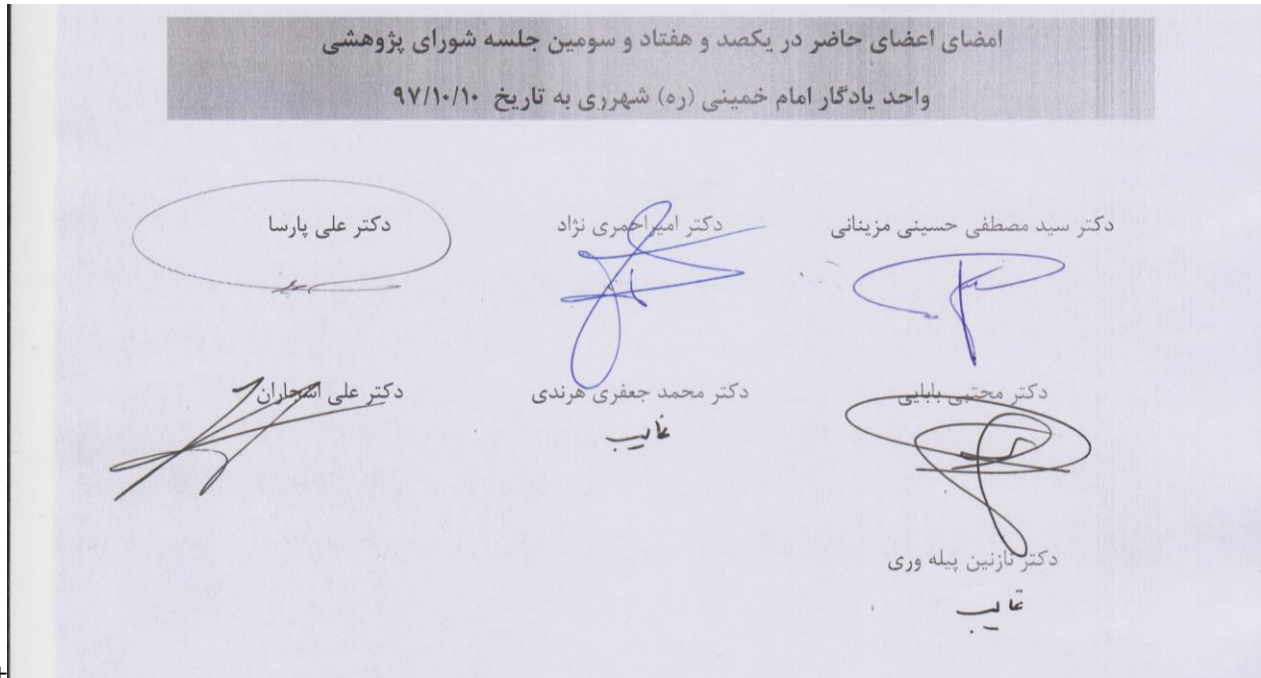 امضای اعضای حاضر در یکصد و هفتاد و سومین جلسه شورای پژوهشی
واحد یادگار امام خمینی (ره) شهرری به تاریخ ۹۷/۱۰/۱۰
دکتر سید مصطفی حسینی مزینانی
دکتر امیراحمری نژاد
دکتر علی پارسا
دکتر مجتبی بابایی
دکتر محمد جعفری هرندی
دکتر علی اشجاران
غایب
دکتر نازنین پیله وری
غایب